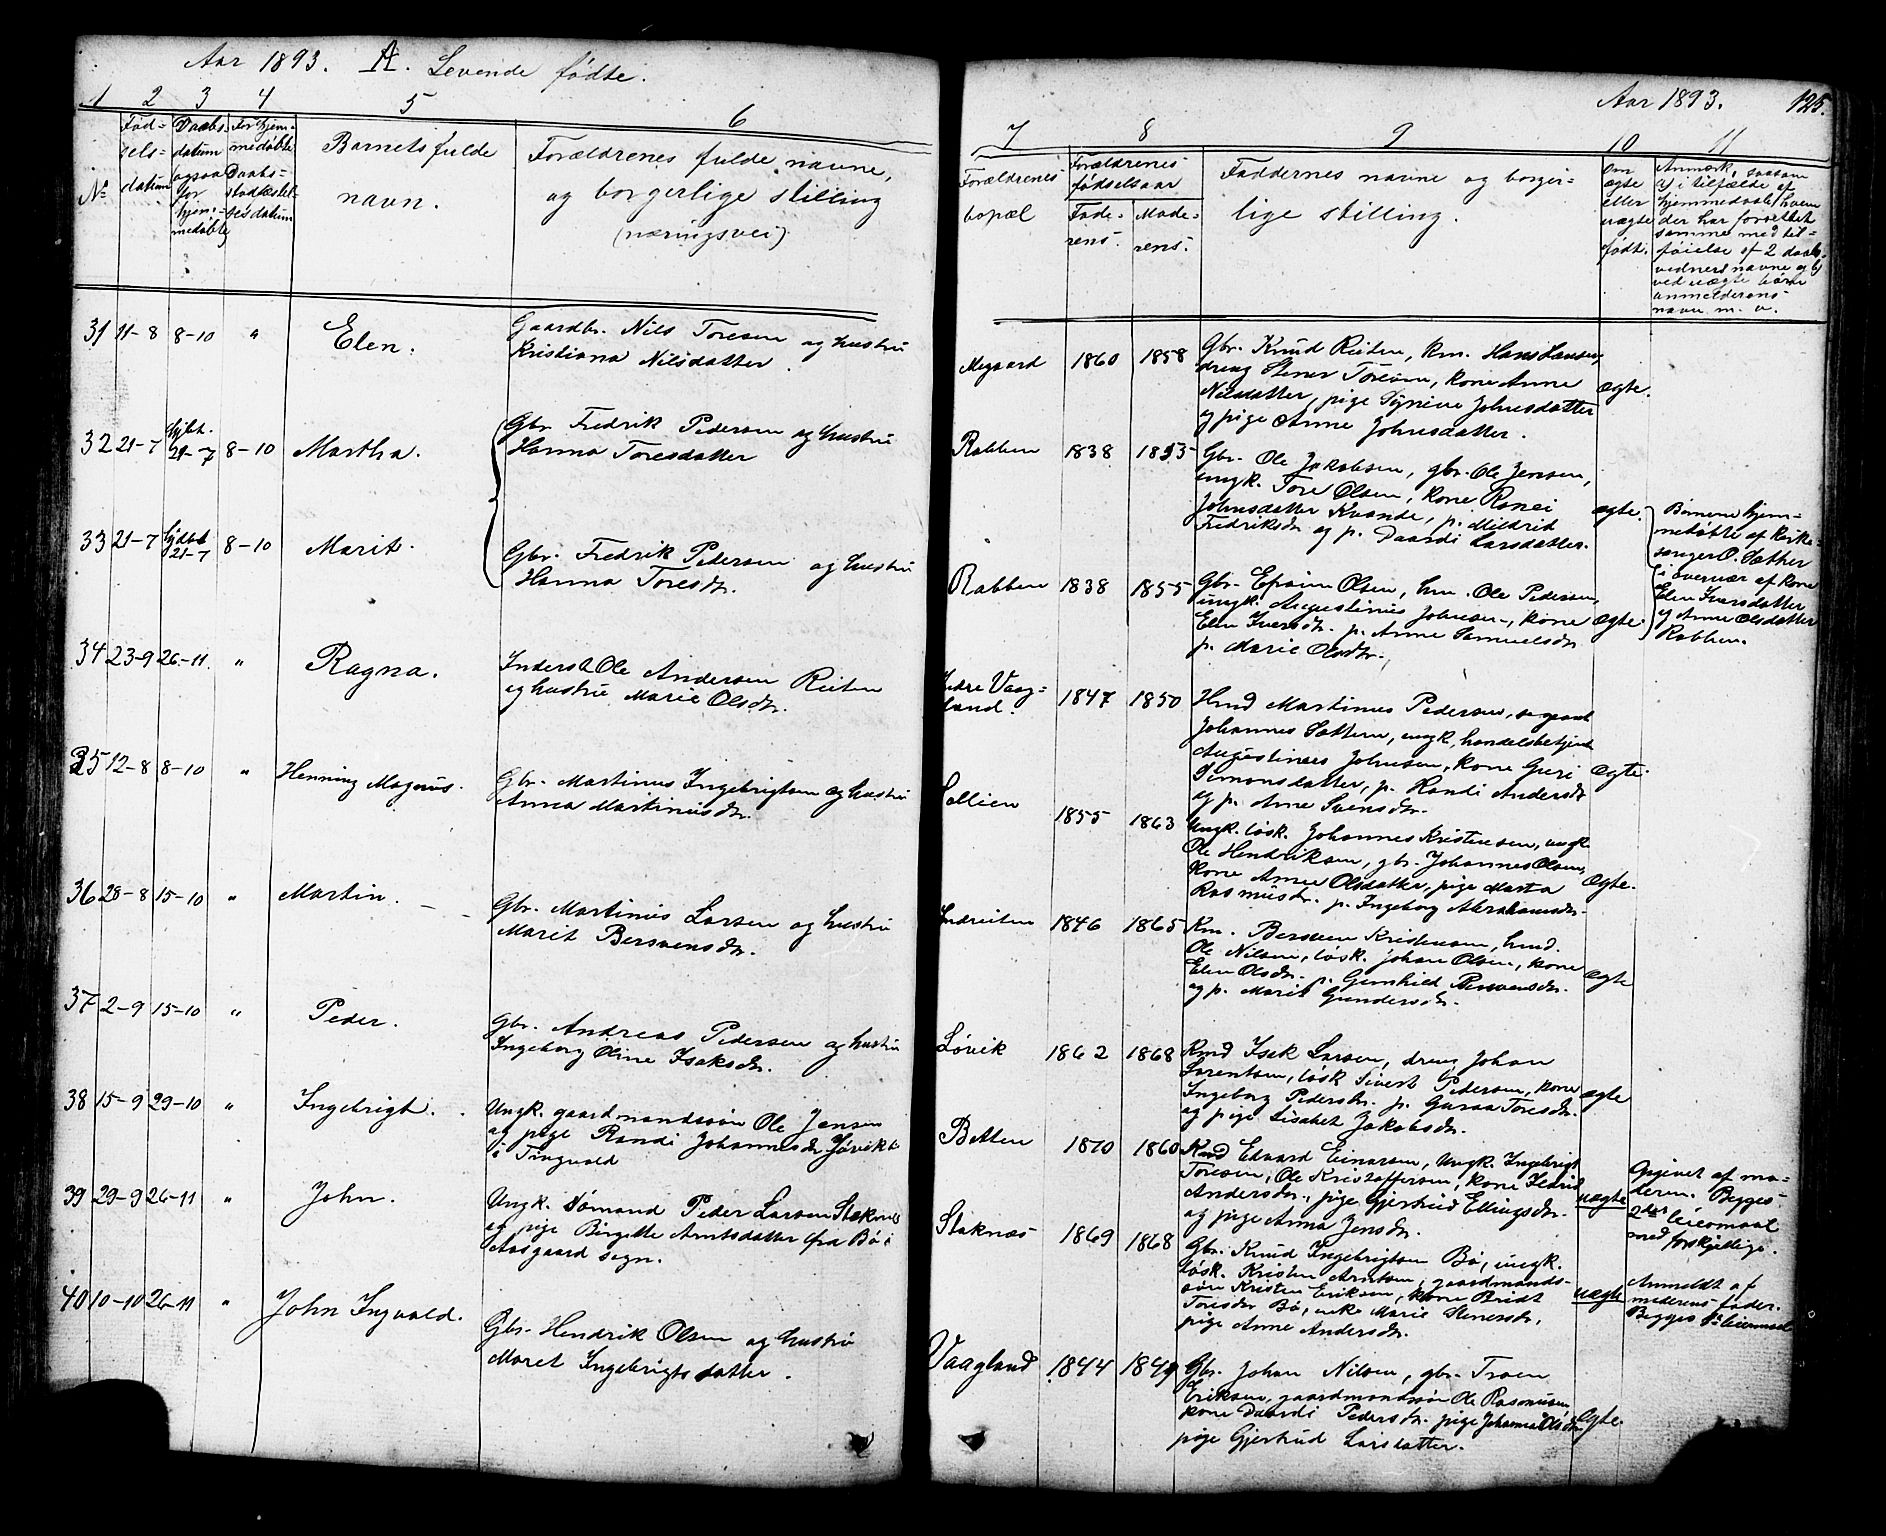 Aar 1893. A. Levende fødte.
1 2 3 4 5 6
№
Fød-
sels-
datum
Daabs-
datum
ogsaa
for
hjem-
medøbte
For hjem-
medøbte
Daabs-
stadfæstel-
ses datum
Barnets fulde
navn.
Forældrenes fulde navne,
og borgerlige stilling
(næringsvei)
31 11-8 8-10 " Elen.
Gaardbr. Nils Toresen og hustru
Kristiana Nilsdatter.
32 21-7 hjbt. 21-7 8-10 Martha.
Gbr. Fredrik Pedersen og hustru
Hanna Toresdatter
33 21-7 hjdbt 21-7 8-10 Marit.
Gbr. Fredrik Pedersen og hustru
Hanna Toresdr.
34 23-9 26-11. " Ragna.
Inderst Ole Andersen Reiten
og hustru Marie Olsdr.
35 12-8 8-10 " Henning Magnus.
Gbr. Martinus Ingebrigtsen og hustru
Anna Martinusdr.
36 28-8 15-10 " Martin.
Gbr. Martinus Larsen og hustru
Marit Bersvensdr.
37 2-9 15-10 " Peder.
Gbr. Andreas Pedersen og hustru
Ingeborg Oline Isaksdr.
38 15-9 29-10 " Ingebrigt.
Ungk. gaardmandssøn Ole Jensen
og pige Randi Johannesdr.
i Tingvold
39 29-9 26-11 " John.
Ungk. Sømand Peder Larsen Staknes
og pige Birgitte Arntsdatter fra Bø i
Aasgaard sogn.
40 10-10 26-11 " John Ingvald.
Gbr. Hendrik Olsen og hustru
Maret Ingebrigtsdatter.
Aar 1893. 125.
7 8 9 10 11
Forældrenes
bopæl
Forældrenes
fødselsaar
Fade-
rens.
Mode-
rens.
Faddernes navne og borger-
lige stilling.
Om
ægte
eller
uægte
født.
Anmærk, saasom
a) i tilfælde af
hjemmedaab, hvem
der har forrettet
samme med til-
føielse af 2 daabs-
vidners navne og b)
ved uægte børn
anmelderens
navn m. v.
Megaard 1860 1858
Gbr. Knud Reiten, km. Hans Hansen,
dreng Stener Toresen, kone Anne
Nilsdatter, pige Synive Johnsdatter
og pige Anne Johnsdatter.
ægte.
Rabben 1838 1853
Gbr. Ole Jakobsen, gbr. Ole Jensen,
ungk. Tore Olsen, kone Ranei
Johnsdatter Kvande, p. Mildrid
Fredriksdr. og p. Daardi Larsdatter.
ægte.
Børnene hjem-
medøbte af Kirke-
sanger O. Sæther
i overvær af kone
Elen Iversdatter
og Anne Olsdatter
Rabben.
Rabben 1838 1855
Gbr. Efraim Olsen, hm. Ole Pedersen,
ungk. Augustinus Johnsen, kone
Elen Iversdr. p. Anne Samuelsdr
p. Marie Olsdr.
ægte.
Indre Vaag-
land. 1847 1850
Hmd Martinus Pedersen, sergeant
Johannes Sættem, ungk, handelsbetjent
Augustinus Johnsen, kone Guri
Simonsdatter, p. Randi Andersdr
og p. Ane Svensdr.
Ægte.
Sollien 1855 1863
Ungk. løsk. Johannes Kristensen, ungk
Ole Hendriksen, gbr. Johannes Olsen,
Kone Anne Olsdatter, pige Marta
Rasmusdr. p. Ingeborg Abrahamsdr.
Ægte.
Indreiten 1846 1865
Km. Bersven Kristensen, hmd.
Ole Nilsen, løsk. Johan Olsen, kone
Elen Olsdr. p. Gunhild Bersvensdr.
og p. Marit Gundersdr.
Ægte
Løvik 1862 1868
Kmd Isak Larsen, dreng Johan
Lorentsen, løsk Sivert Pedersen, kone
Ingeborg Pedersdr. p. Guraa Toresdr.
og pige Lisabet Jakobsdr.
ægte
Betten 1870 1860
Kmd Edvard Einarsen, Ungk. Ingebrigt
Toresen, Ole Kristoffersen, kone Ildrid
Andersdr., pige Gjertrud Ellingsdr.
og pige Anna Jensdr.
uægte
Opgivet af mo-
deren. Begges
2det leiermaal
med forskjellige.
Staknæs 1869 1868
Gbr. Knud Ingebrigtsen Bø, ungk.
løsk. Kristen Arntsen, gaardmands-
søn Kristen Eriksen, kone Bridt
Toresdr Bø, enke Marie Stenersdr,
pige Anne Andersdr.
uægte
Anmeldt af
moderens fader.
Begges 1ste leiermaal
Vaagland 1844 1849
Gbr. Johan Nilsen, gbr. Troen
Eriksen, gaardmandssøn Ole Rasmusen
kone Daardi Pedersdr. pige Johanna Olsdr.
pige Gjertrud Larsdatter.
Ægte.